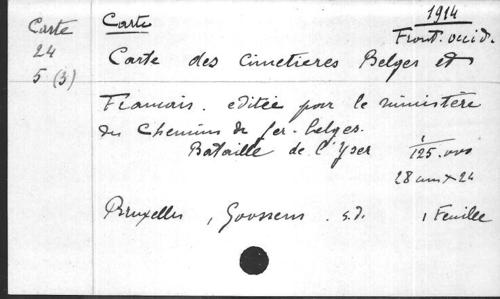 Carte
24
5 (3)
Carte
1914
Front. occid.
Carte des Cimetieres Belges et
Francais. editée par le ministère
des Chemins de fer belges.
Bataille de l'Yser
1
125.000
28 cm x 24
Bruxelles, Goossens. s.d. 1 Feuille